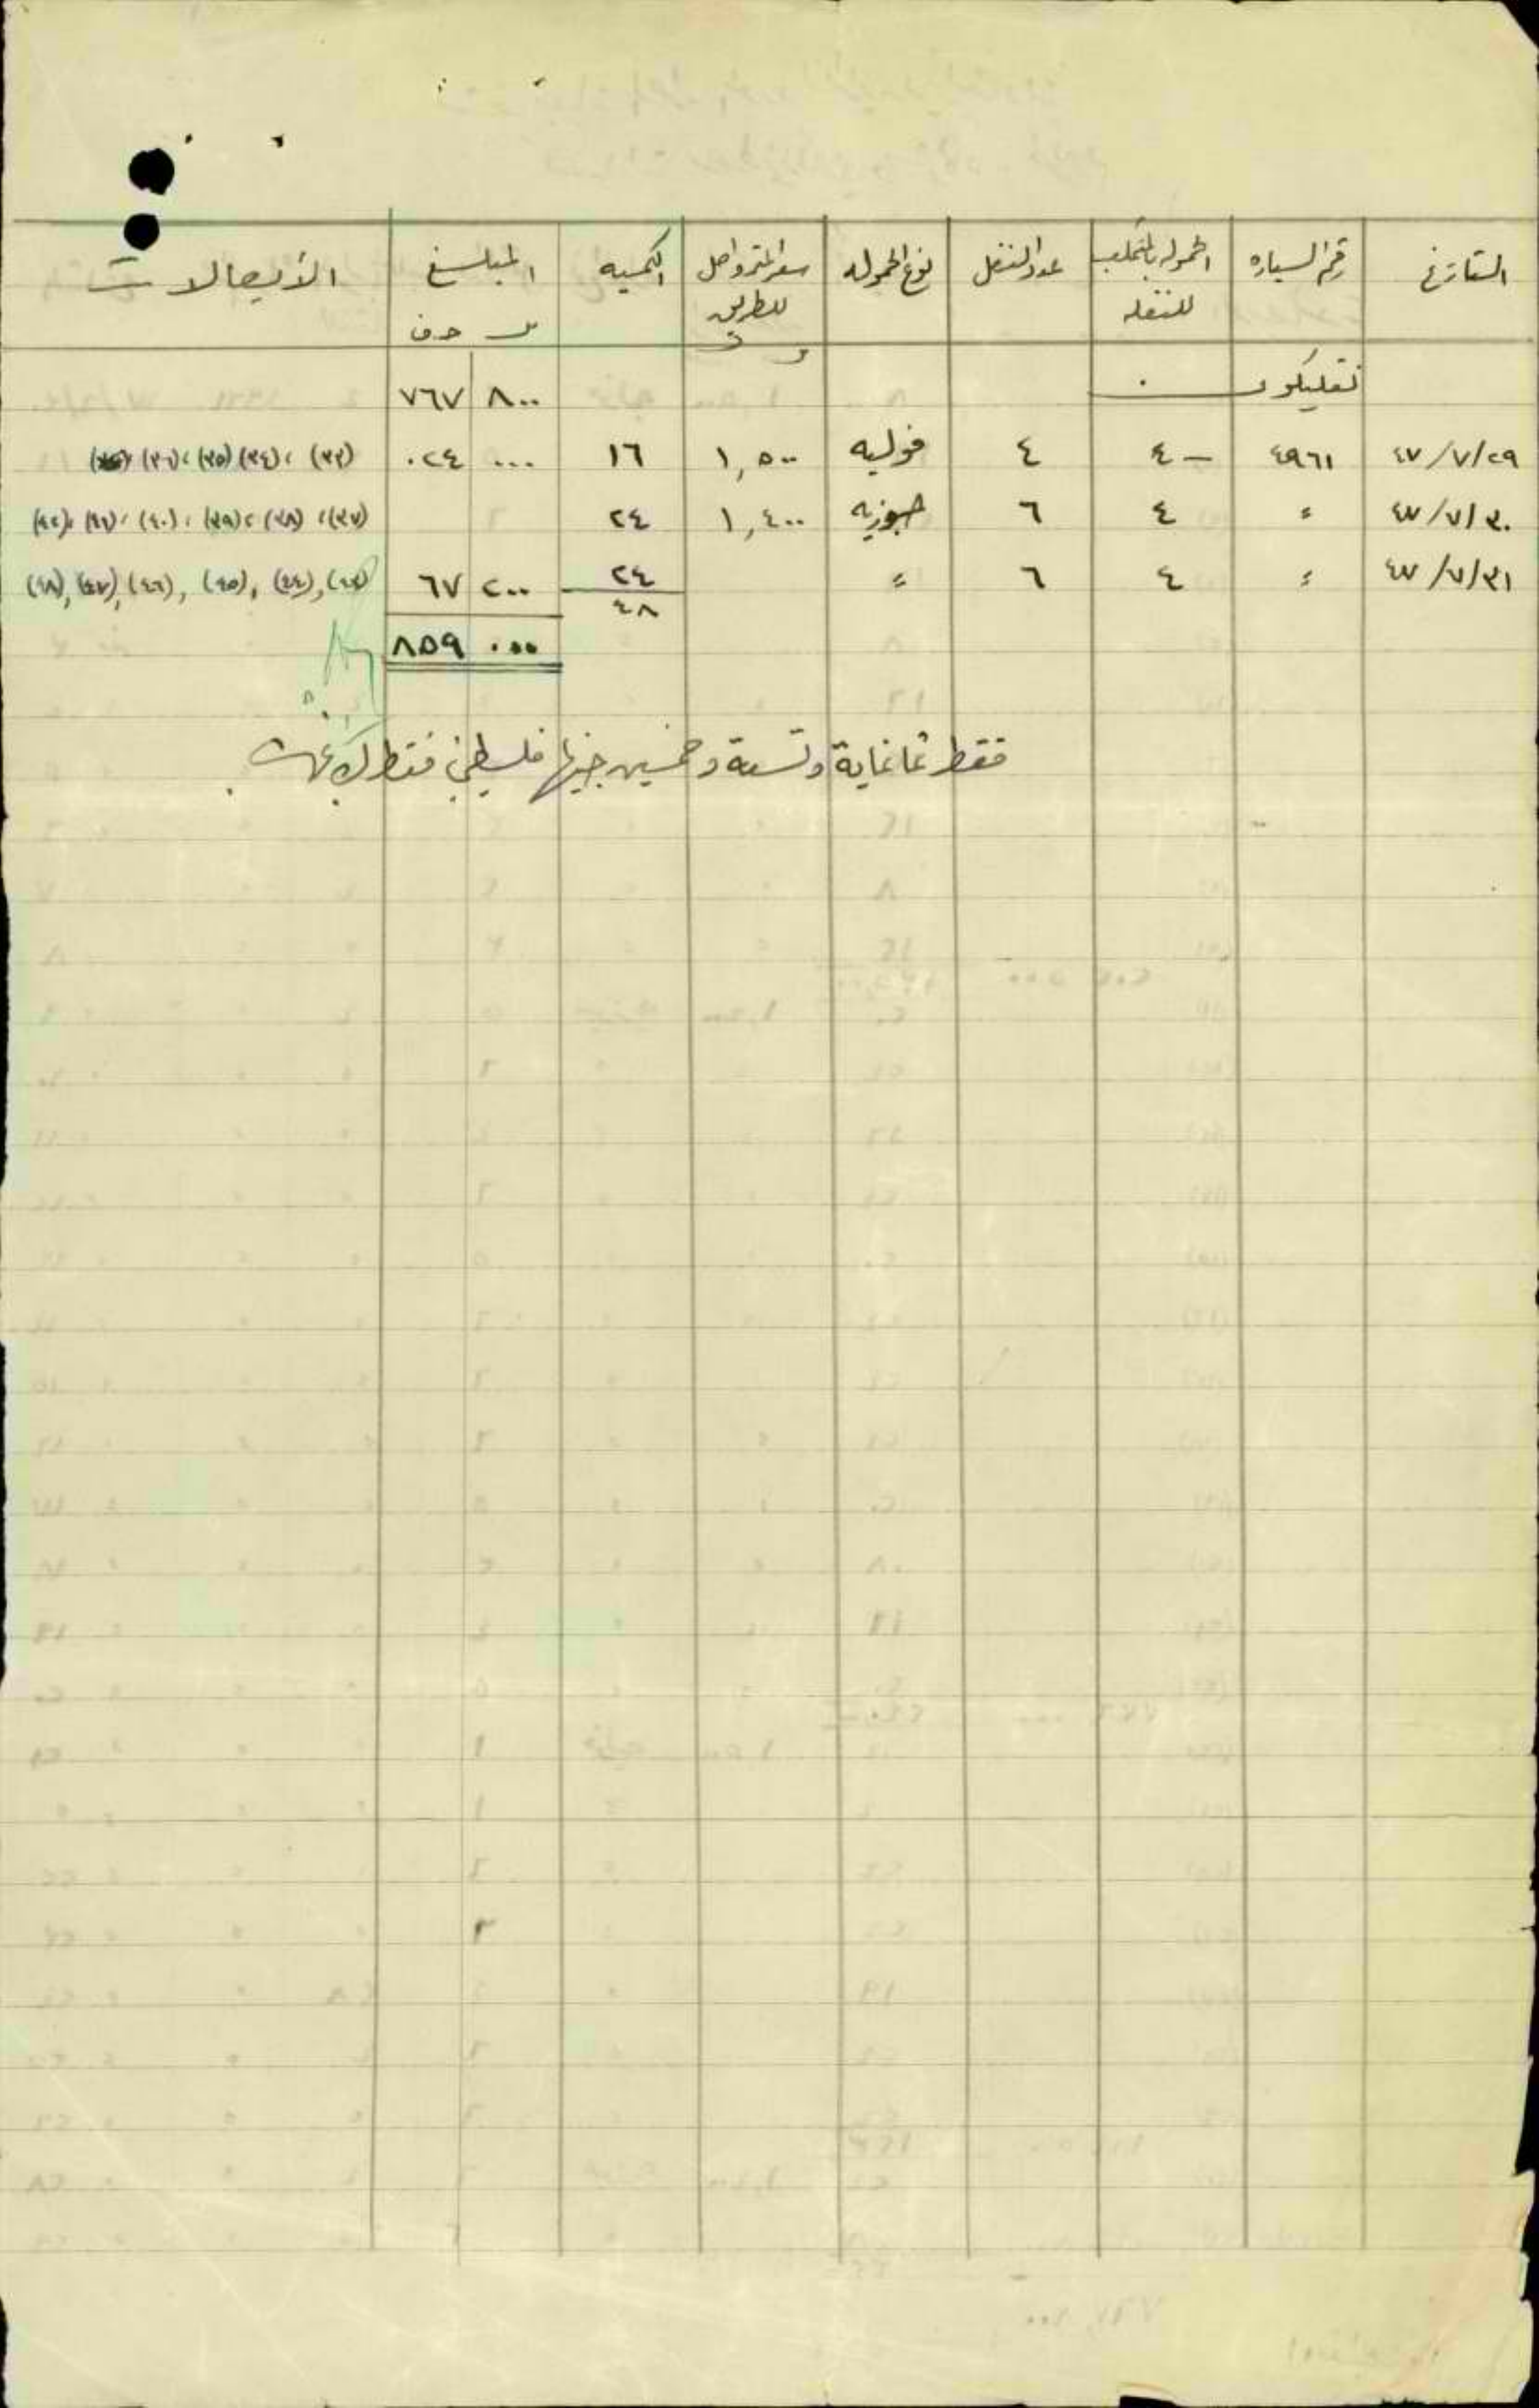 التاريخ رقم السياره الحموله بالمتر المكعب للنقله عدد النقل نوع الحموله سعر المتر واصل للطريق الكميه المبلغ الأيصالات
مل جـ ف
٨٠٠ ٧٦٧
٤٧/٧/٢٩ ٤٩٦١ ٤ – ٤ فوليه ١,٥٠٠ ١٦ ٠٠٠ ٠٢٤ (٣٣) ، (٣٤) (٣٥) ، (٣٦)
٤٧/٧/٣٠ = ٤ ٦ جوزيه ١,٤٠٠ ٢٤ (٣٧) ، (٣٨) ، (٣٩) ، (٤٠) ، (٤١) ، (٤٢)
٤٧/٧/٣١ = ٤ ٦ = ٢٤ ٢٠٠ ٦٧ (٤٣) , (٤٤) , (٤٥) , (٤٦) , (٤٧) , (٤٨)
٤٨
٠٠٠ ٨٥٩
فقط ثمانماية وتسعة وخمسين جنيها فلسطيني فقط لا غير